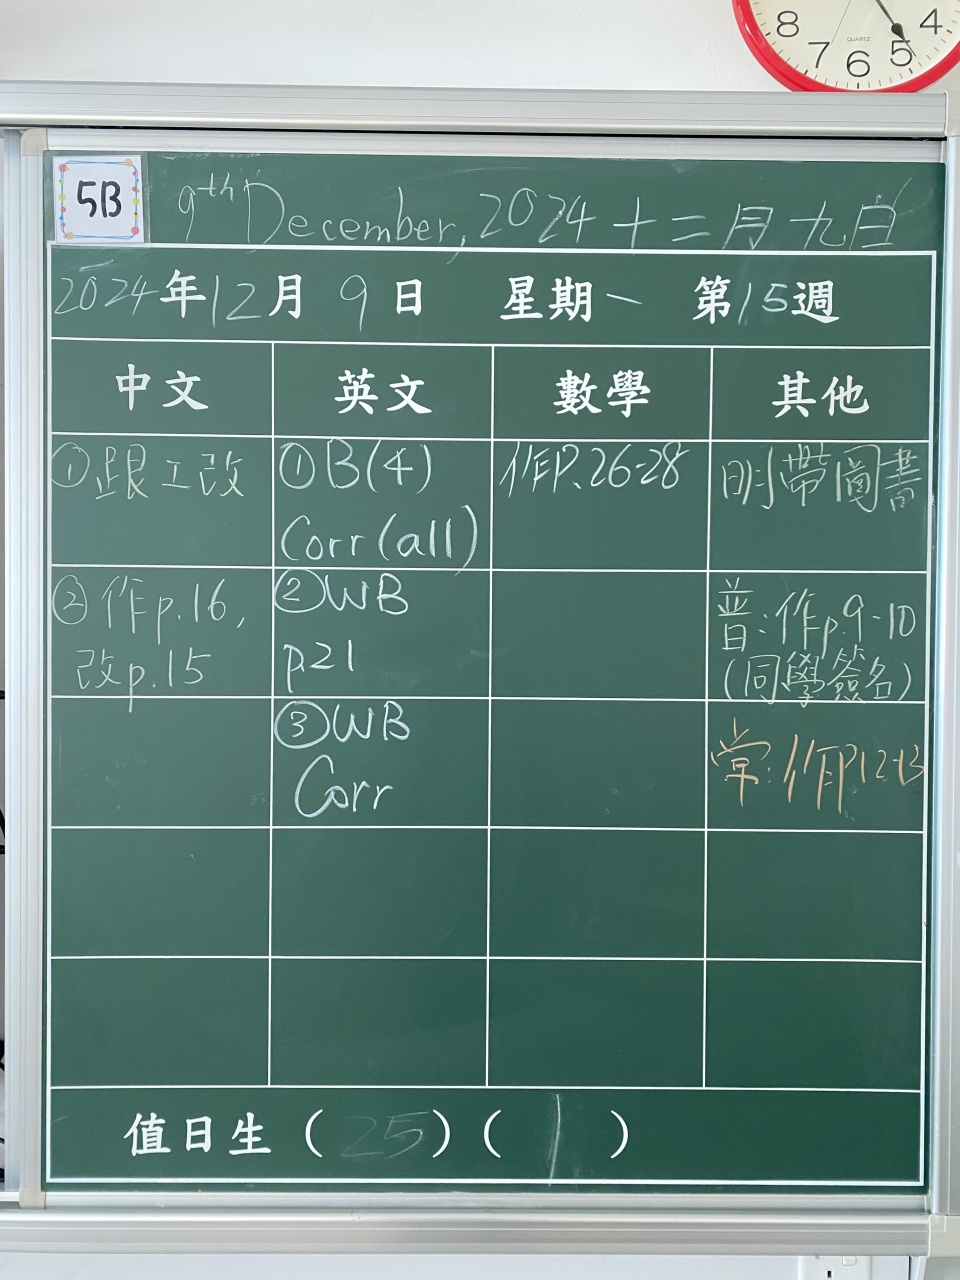 8 7 6 5 4
QUARTZ
5B
9th December, 2024 十二月九日
2024年12月9日 星期一 第15週
中文 英文 數學 其他
①跟工改 ①B(4) 作P.26-28 明帶圖書
Corr(all)
②作p.16, ②WB 普:作p.9-10
改p.15 p.21 (同學簽名)
③WB 常:作P12-13
Corr
值日生(25)(1)